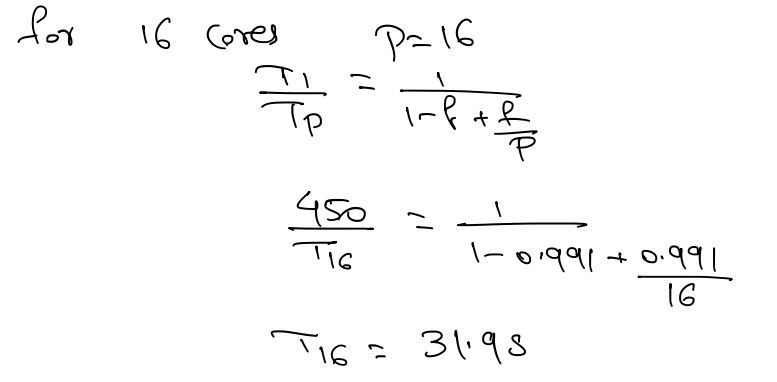 for 16 cores P=16
T1/Tp = 1/(1-f + f/P)
450/T16 = 1/(1-0.991 + 0.991/16)
T16 = 31.9s